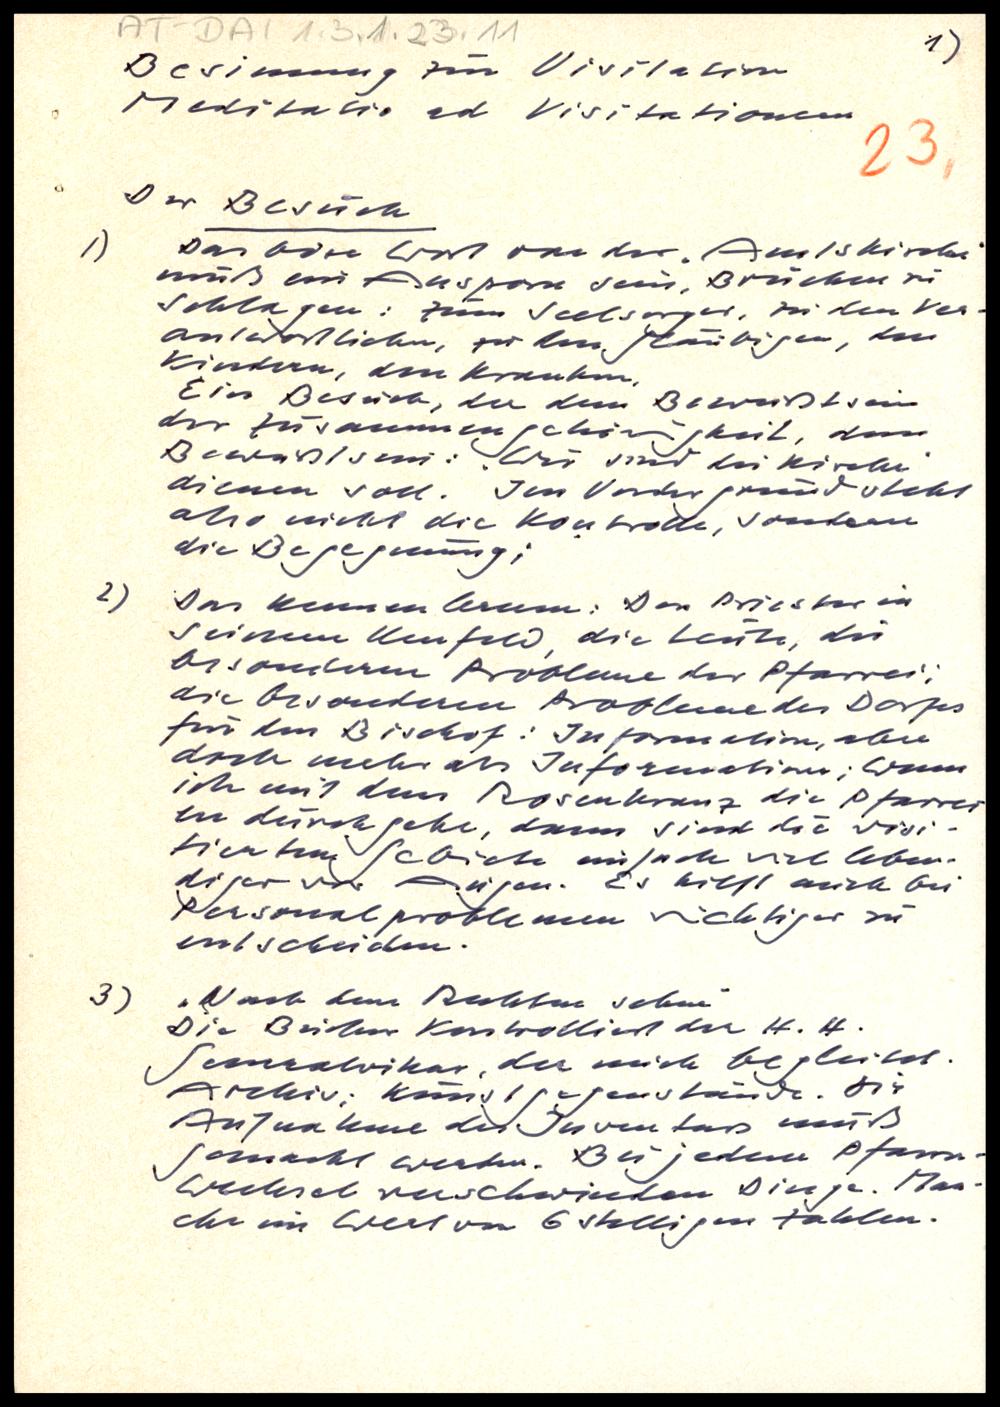 AT-DAI 1.3.1.23.11
1)
Besinnung zur Visitation
Meditatio ad Visitationem
23,
Der Besuch
1) Das böse Wort von der „Amtskirche"
muß ein Ansporn sein, Brücken zu
schlagen: zum Seelsorger, zu den Ver-
antwortlichen, zu den Gläubigen, den
Kindern, den Kranken.
Ein Besuch, der dem Bewußtsein
der Zusammengehörigkeit, dem
Bewußtsein: „Wir sind die Kirche"
dienen soll. Im Vordergrund steht
also nicht die Kontrolle, sondern
die Begegnung;
2) Das Kennenlernen: Den Priester in
seinem Umfeld, die Leute, die
besonderen Probleme der Pfarrei;
die besonderen Probleme des Dorfes
für den Bischof: Information, aber
doch mehr als Information; wenn
ich mit dem Rosenkranz die Pfarrei
en durchgehe, dann sind die visi-
tierten Gebiete einfach viel leben-
diger vor Augen. Es hilft auch bei
Personalproblemen richtiger zu
entscheiden.
3) „Nach dem Rechten sehen"
Die Bücher kontrolliert der H. H.
Generalvikar, der mich begleitet.
Archiv; Kunstgegenstände. Die
Aufnahme des Inventars muß
gemacht werden. Bei jedem Pfarr-
wechsel verschwinden Dinge. Man-
che im Wert von 6 stelligen Zahlen.